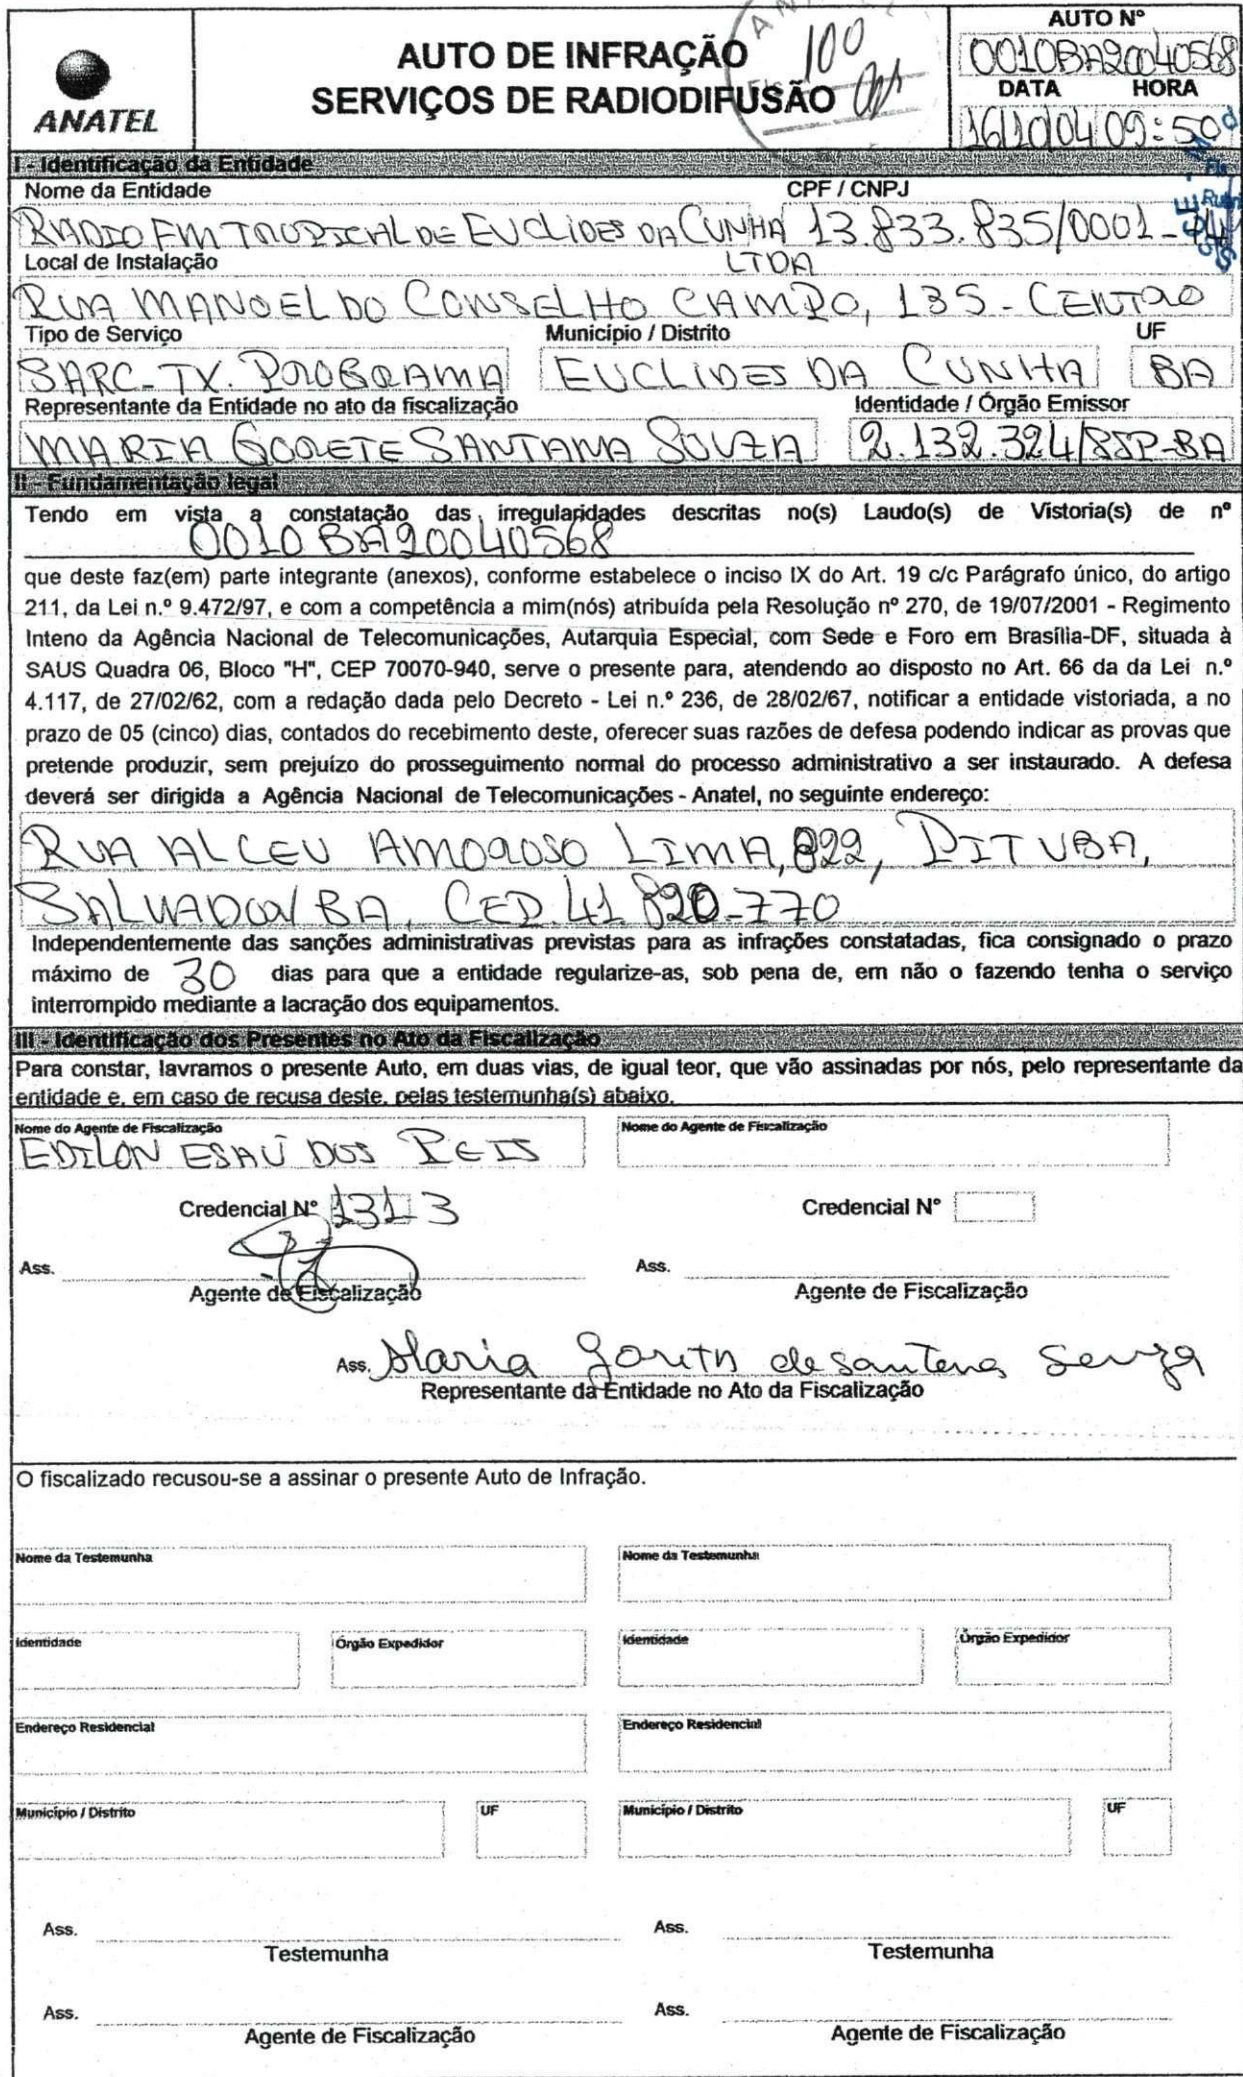 ANATEL
AUTO DE INFRAÇÃO
SERVIÇOS DE RADIODIFUSÃO
100
AUTO Nº
0010BA20040568
DATA HORA
16/10/04 09:50
I - Identificação da Entidade
Nome da Entidade CPF / CNPJ
RADIO FM TROPICAL DE EUCLIDES DA CUNHA 13.833.835/0001-74
LTDA
Local de Instalação
RUA MANOEL DO CONSELHO CAMPO, 135 - CENTRO
Tipo de Serviço Município / Distrito UF
SARC-TX. PROGRAMA EUCLIDES DA CUNHA BA
Representante da Entidade no ato da fiscalização Identidade / Órgão Emissor
MARIA GORETE SANTANA SOUZA 2.132.324/SSP-BA
II - Fundamentação legal
Tendo em vista a constatação das irregularidades descritas no(s) Laudo(s) de Vistoria(s) de nº
0010BA20040568
que deste faz(em) parte integrante (anexos), conforme estabelece o inciso IX do Art. 19 c/c Parágrafo único, do artigo
211, da Lei n.º 9.472/97, e com a competência a mim(nós) atribuída pela Resolução nº 270, de 19/07/2001 - Regimento
Inteno da Agência Nacional de Telecomunicações, Autarquia Especial, com Sede e Foro em Brasília-DF, situada à
SAUS Quadra 06, Bloco "H", CEP 70070-940, serve o presente para, atendendo ao disposto no Art. 66 da da Lei n.º
4.117, de 27/02/62, com a redação dada pelo Decreto - Lei n.º 236, de 28/02/67, notificar a entidade vistoriada, a no
prazo de 05 (cinco) dias, contados do recebimento deste, oferecer suas razões de defesa podendo indicar as provas que
pretende produzir, sem prejuízo do prosseguimento normal do processo administrativo a ser instaurado. A defesa
deverá ser dirigida a Agência Nacional de Telecomunicações - Anatel, no seguinte endereço:
RUA ALCEU AMOROSO LIMA, 822, PITUBA,
SALVADOR/BA, CEP. 41.820-770
Independentemente das sanções administrativas previstas para as infrações constatadas, fica consignado o prazo
máximo de 30 dias para que a entidade regularize-as, sob pena de, em não o fazendo tenha o serviço
interrompido mediante a lacração dos equipamentos.
III - Identificação dos Presentes no Ato da Fiscalização
Para constar, lavramos o presente Auto, em duas vias, de igual teor, que vão assinadas por nós, pelo representante da
entidade e, em caso de recusa deste, pelas testemunha(s) abaixo.
Nome do Agente de Fiscalização Nome do Agente de Fiscalização
EDILON ESAÚ DOS REIS
Credencial Nº 1313 Credencial Nº
Ass. Ass.
Agente de Fiscalização Agente de Fiscalização
Ass. Maria Goreth de Santana Souza
Representante da Entidade no Ato da Fiscalização
O fiscalizado recusou-se a assinar o presente Auto de Infração.
Nome da Testemunha Nome da Testemunha
Identidade Órgão Expedidor Identidade Órgão Expedidor
Endereço Residencial Endereço Residencial
Município / Distrito UF Município / Distrito UF
Ass. Ass.
Testemunha Testemunha
Ass. Ass.
Agente de Fiscalização Agente de Fiscalização